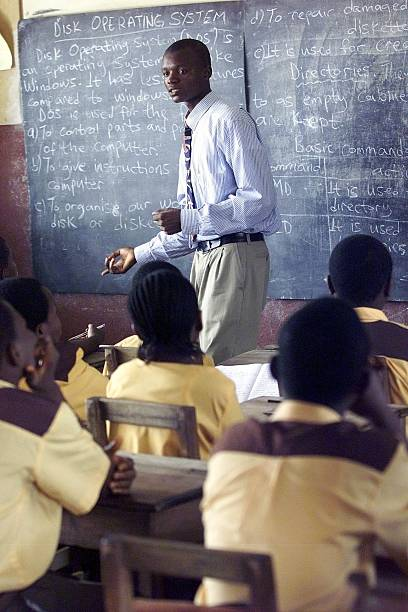 DISK OPERATING SYSTEM
Disk Operating System (DOS) is
an operating System
Windows. It has less
compared to Windows
DOS is used for the
a) To control parts and
of the computer
b) To give instructions
computer
c) To organise our
disk or
d) To repair damaged
diskette
e) It is used for
Directories. They
as empty cabinets
are kept.
Basic command
MD
It is used
directory
It is used